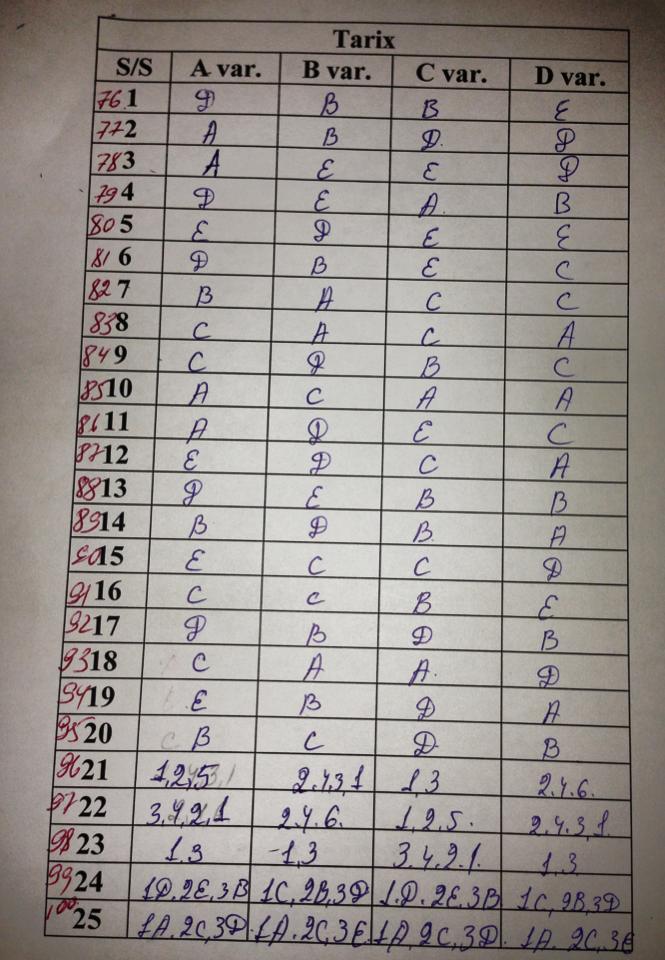 Tarix
S/S A var. B var. C var. D var.
76. 1 D B B E
77 2 A B D. D
78 3 A E E D
79 4 D E A. B
80 5 E D E E
81 6 D B E C
82 7 B A C C
83 8 C A C A
84 9 C D B C
85 10 A C A A
86 11 A D E C
87 12 E D C A
88 13 D E B B
89 14 B D B. A
90 15 E C C D
91 16 C C B E
92 17 D B D B
93 18 C A A. D
94 19 E B D A
95 20 B C D. B
96 21 1,2,5 2.4.3,1 1,3 2.4.6.
97 22 3,4,2,1 2.4.6. 1,2,5. 2.4.3,1.
98 23 1.3 1,3 3.4.2.1. 1,3
99 24 1D.2E,3B 1C,2B,3D 1.D.2E,3B 1C,2B,3D
100 25 1A.2C,3D 1A.2C,3E 1A,2C,3D. 1A.2C,3E